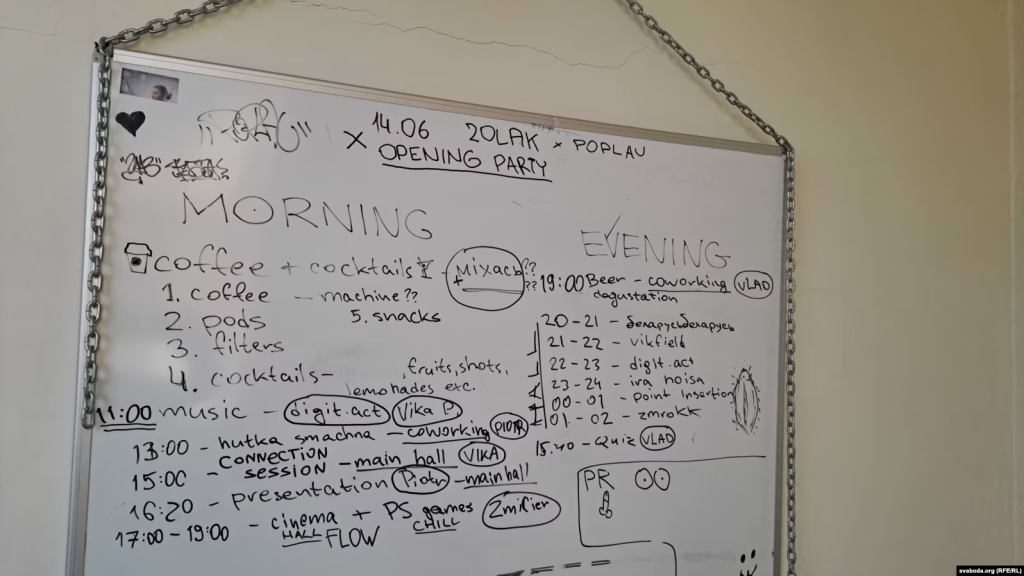 x 14.06 2OLAK x POPLAU
OPENING PARTY
MORNING
coffee + cocktails - михась??
+
1. coffee - machine??
2. pods
5. snacks
3. filters
4. cocktails - fruits, shots,
lemonades exc.
11:00 music - digit.act Vika P
13:00 - hutka smachna - coworking PIOTR
15:00 - CONNECTION SESSION - main hall VIKA
16:20 - presentation Piotr - main hall
17:00 - 19:00 - cinema + PS games Zmifier
HALL FLOW CHILL
EVENING
?? 19:00 Beer - coworking VLAD
dagustation
HALL
20 - 21 - беларусьбеларусь
21 - 22 - vikfield
22 - 23 - digit.act
23 - 24 - ira noisa
00 - 01 - point insertion
01 - 02 - zmrokk
15.40 - Quiz VLAD
PR
svaboda.org (RFE/RL)